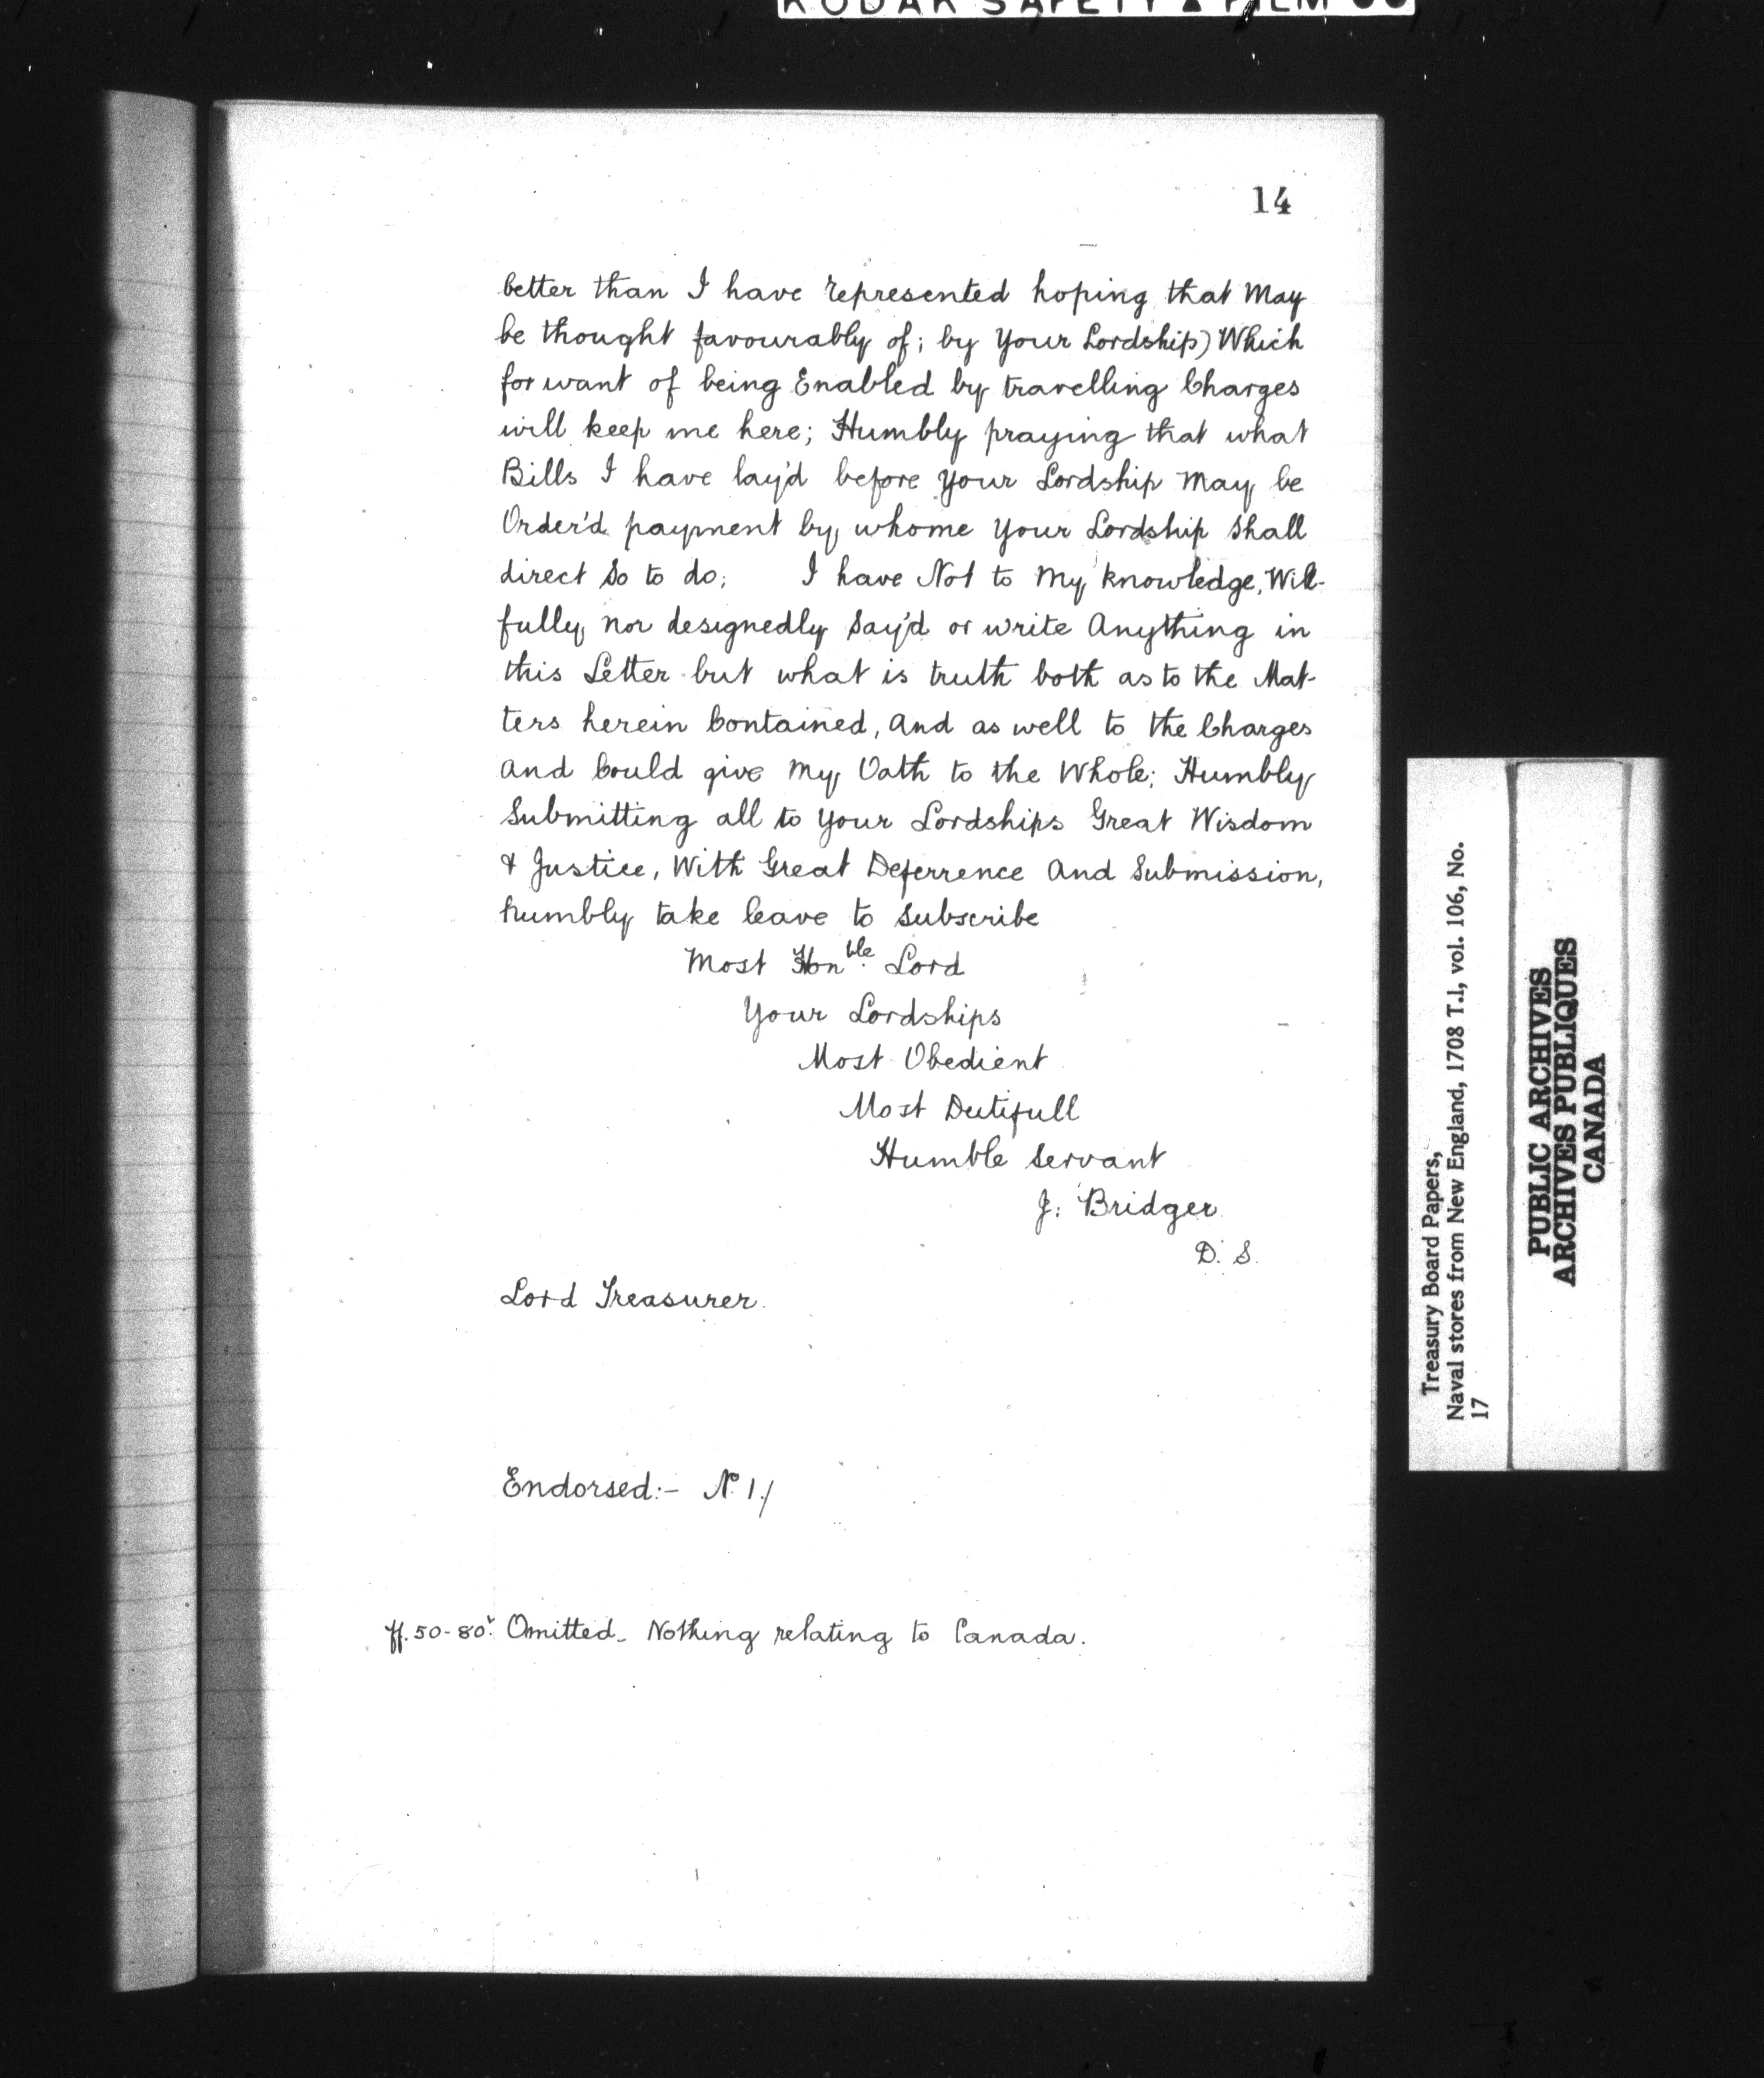 KODAK SAFETY ▲ FILM
14
better than I have represented hoping that May
be thought favourably of; by Your Lordship) Which
for want of being Enabled by travelling Charges
will keep me here; Humbly praying that what
Bills I have lay'd before Your Lordship May be
Order'd payment by whome Your Lordship Shall
direct So to do; I have Not to My knowledge, Will-
fully nor designedly Say'd or write Anything in
this Letter but what is truth both as to the Mat-
ters herein Contained, And as well to the Charges
And Could give My Oath to the Whole; Humbly
Submitting all to Your Lordships Great Wisdom
& Justice, With Great Deferrence And Submission,
humbly take leave to Subscribe
Most Honble. Lord
Your Lordships
Most Obedient
Most Dutifull
Humble Servant
J: Bridger
D. S.
Lord Treasurer.
Endorsed:- No. 1./
ff. 50-80v. Omitted_ Nothing relating to Canada.
Treasury Board Papers,
Naval stores from New England, 1708 T.1, vol. 106, No.
17
PUBLIC ARCHIVES
ARCHIVES PUBLIQUES
CANADA